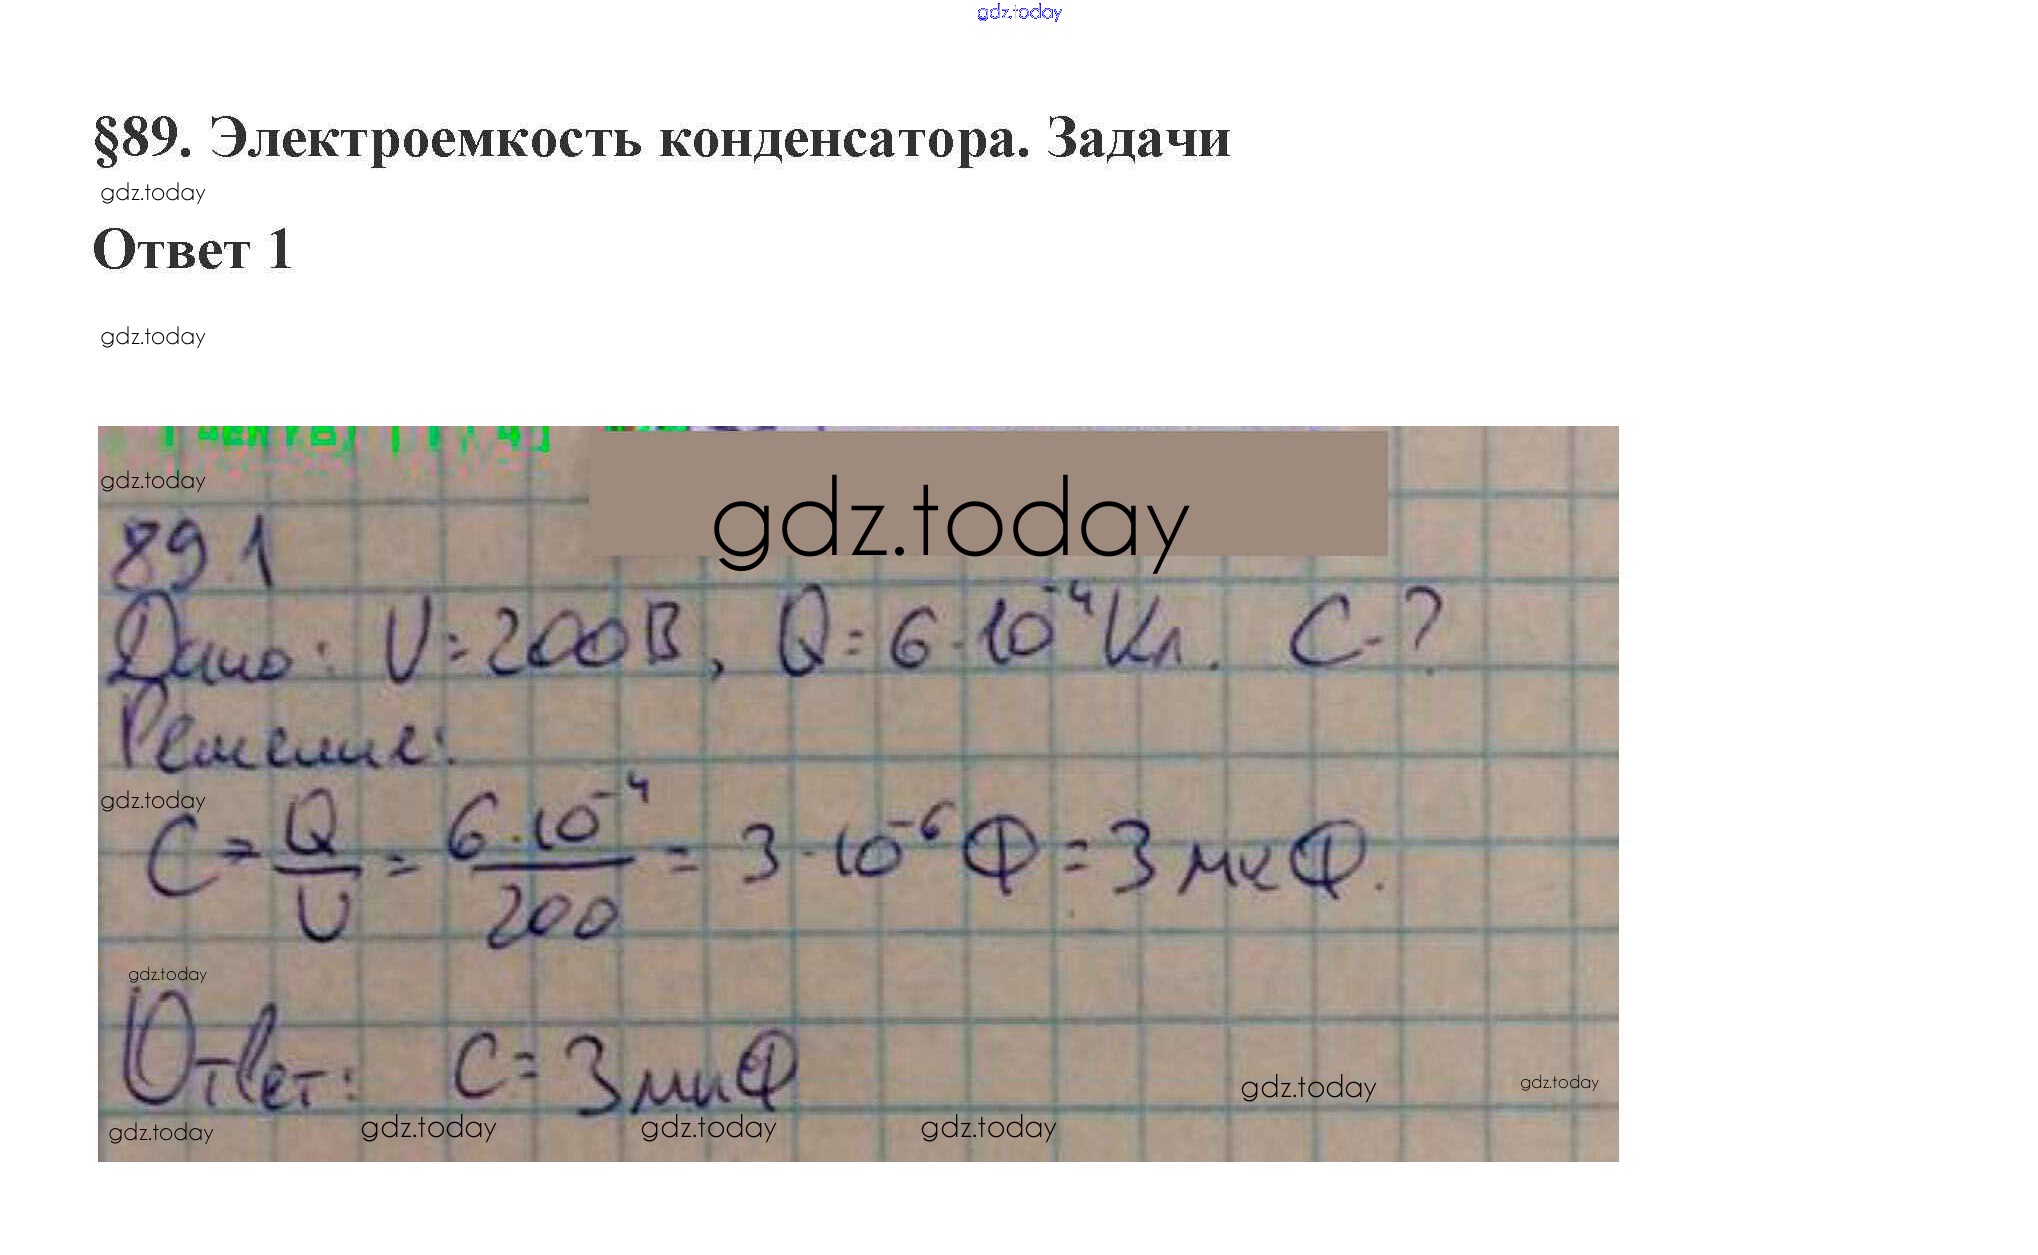 gdz.today
§89. Электроемкость конденсатора. Задачи
gdz.today
Ответ 1
gdz.today
gdz.today
gdz.today
89.1
Дано: U = 200В, Q = 6·10⁻⁴Кл. C-?
Решение:
gdz.today
C = Q/U = 6·10⁻⁴/200 = 3·10⁻⁶ Ф = 3 мкФ.
gdz.today
Ответ: C = 3мкФ
gdz.today gdz.today
gdz.today gdz.today gdz.today gdz.today